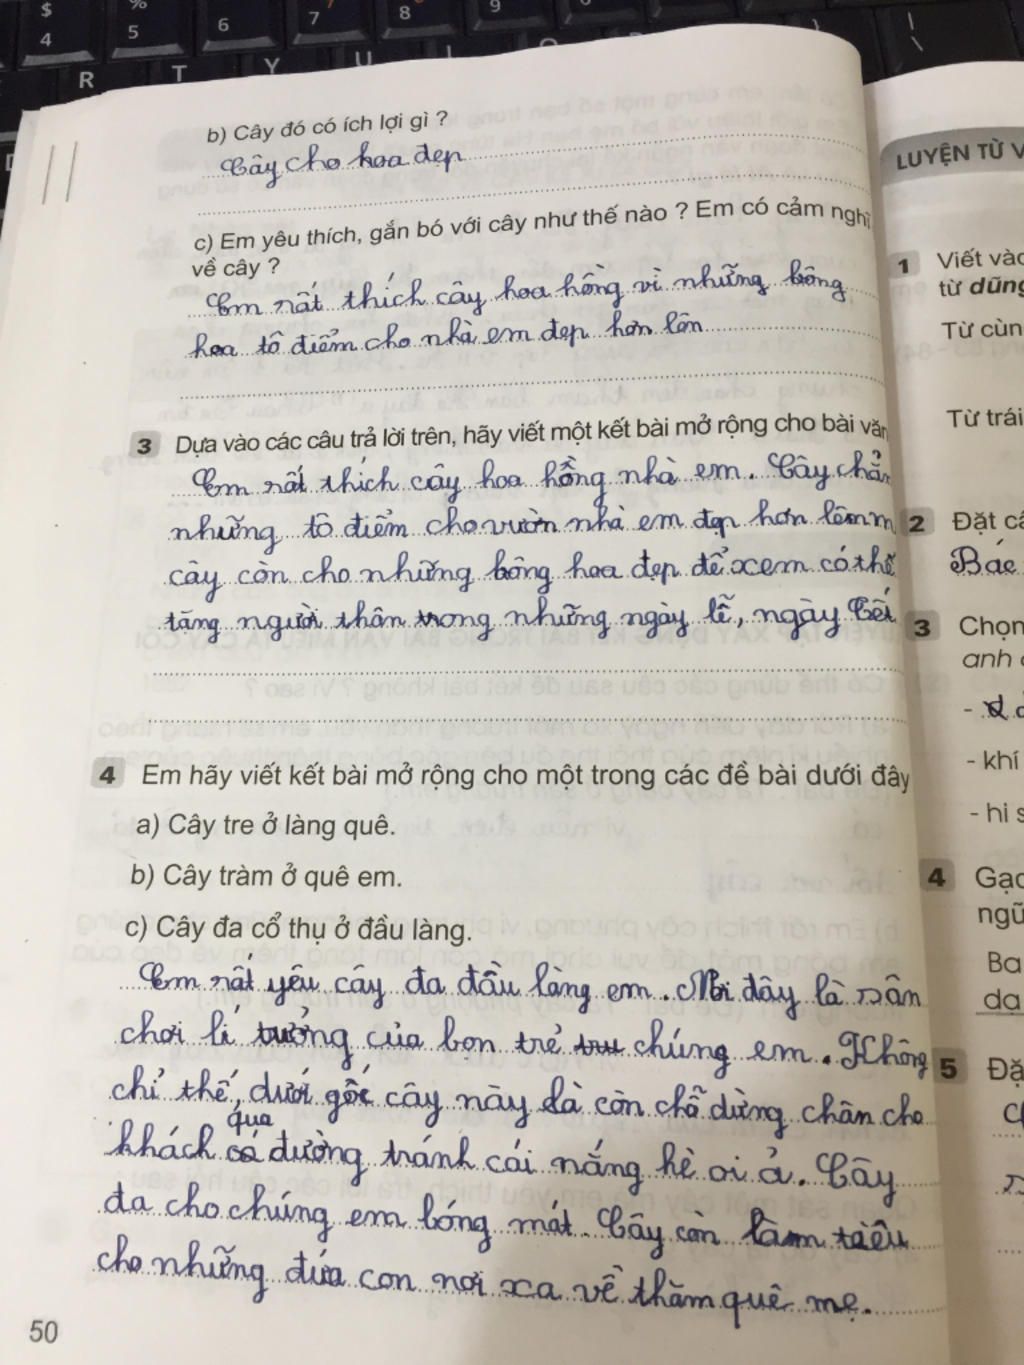 $
4
%
5
6
7
8
9
R
T
Y
U
b) Cây đó có ích lợi gì ?
Cây cho hoa đẹp
c) Em yêu thích, gắn bó với cây như thế nào ? Em có cảm nghĩ
về cây ?
Em rất thích cây hoa hồng vì những bông
hoa tô điểm cho nhà em đẹp hơn lên
3 Dựa vào các câu trả lời trên, hãy viết một kết bài mở rộng cho bài văn
Em rất thích cây hoa hồng nhà em. Cây chẳn
những tô điểm cho vườn nhà em đẹp hơn lên mà
cây còn cho những bông hoa đẹp để xem có thể
tặng người thân trong những ngày lễ, ngày Tết
4 Em hãy viết kết bài mở rộng cho một trong các đề bài dưới đây
a) Cây tre ở làng quê.
b) Cây tràm ở quê em.
c) Cây đa cổ thụ ở đầu làng.
Em rất yêu cây đa đầu làng em. Nơi đây là sân
chơi lí tưởng của bọn trẻ chúng em. Không
chỉ thế, dưới gốc cây này là còn chỗ dừng chân cho
qua
khách đường tránh cái nắng hè oi ả. Cây
đa cho chúng em bóng mát. Cây còn làm
cho những đứa con nơi xa về thăm quê mẹ.
50
LUYỆN TỪ V
1 Viết vào
từ dũng
Từ cùn
Từ trái
2 Đặt câ
Bác
3 Chọn
anh
- khí
- hi s
4 Gạc
ngũ
Ba
da
5 Đặ